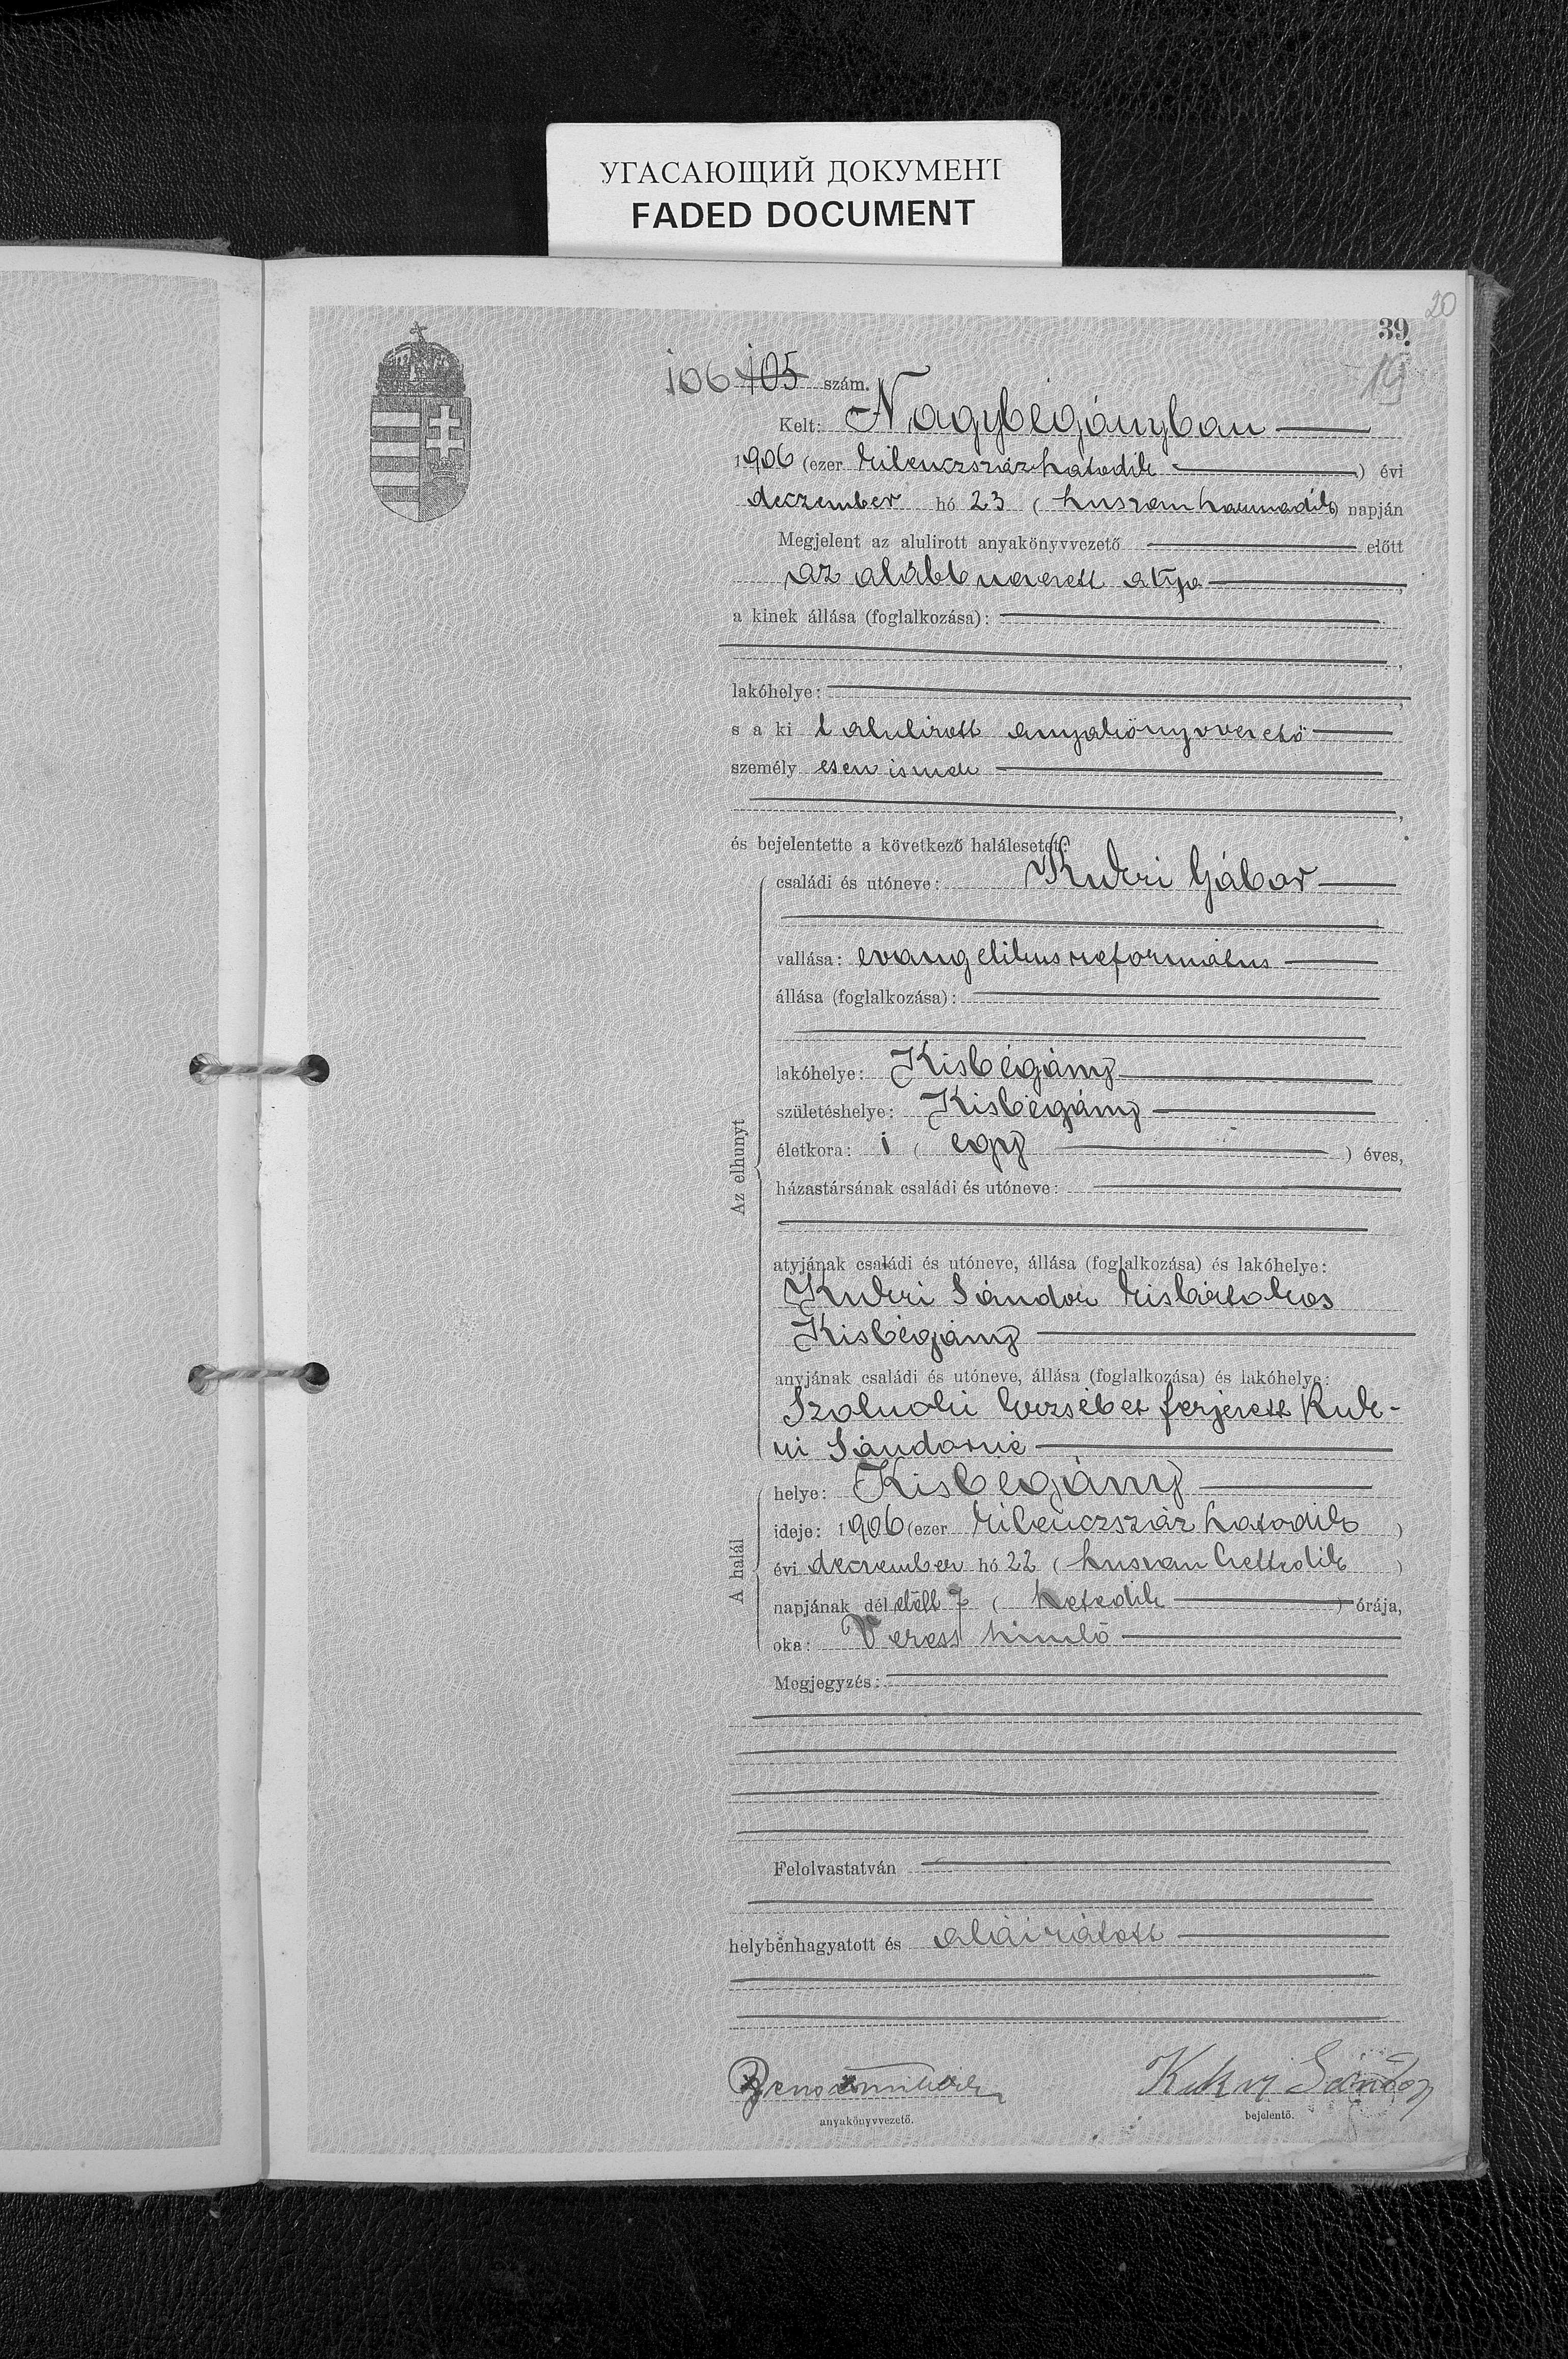 УГАСАЮЩИЙ ДОКУМЕНТ
FADED DOCUMENT
20
39.
19
106 105 szám.
Kelt: Nagybégányban
1906 (ezer kilenczszázhatodik) évi
deczember hó 23 (huszonharmadik) napján
Megjelent az alulirott anyakönyvvezető előtt
az alább nevezett atyja,
a kinek állása (foglalkozása):
lakóhelye:
s a ki t alulirott anyakönyvvezető
személyesen ismer
és bejelentette a következő halálesetet:
Az elhunyt
családi és utóneve: Kukri Gábor
vallása: evangelikus református
állása (foglalkozása):
lakóhelye: Kisbégány
születéshelye: Kisbégány
életkora: 1 (egy) éves,
házastársának családi és utóneve:
atyjának családi és utóneve, állása (foglalkozása) és lakóhelye:
Kukri Sándor kisbirtokos
Kisbégány
anyjának családi és utóneve, állása (foglalkozása) és lakóhelye:
Szolnoki Erzsébet férjezett Kuk-
ri Sándorné
A halál
helye: Kisbégány
ideje: 1906 (ezer kilenczszáz hatodik)
évi deczember hó 22 (huszonkettedik)
napjának dél előtt 7 (hetedik) órája,
oka: Veress himlő
Megjegyzés:
Felolvastatván
helybenhagyatott és aláiratott
Kukri Sándor
anyakönyvvezető.
bejelentő.